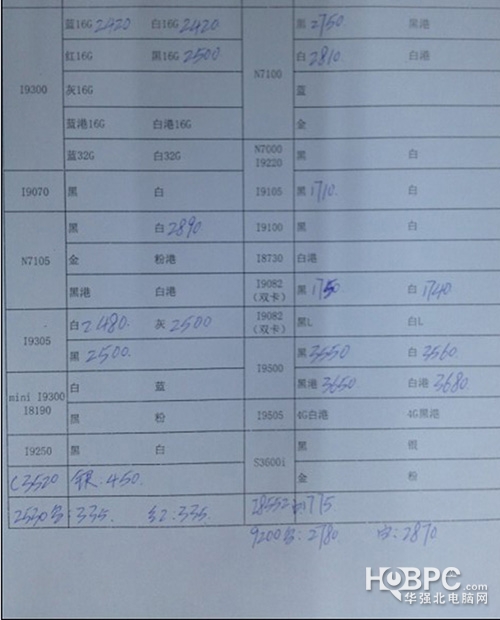 I9300
蓝16G 2420 白16G 2420
红16G 黑16G 2500
灰16G
蓝港16G 白港16G
蓝32G 白32G
I9070 黑 白
N7105
黑 白 2890
金 粉港
黑港 白港
I9305
白 2480. 灰 2500
黑 2500.
mini I9300
I8190
白 蓝
黑 粉
I9250 黑 白
C3520 银:450.
2530 :335. 红:335.
N7100
黑 2750. 黑港
白 2810 白港
蓝
金
N7000
I9220
黑 白
I9105 黑 1710. 白
I9100 黑 白
I8730 白港
I9082
(双卡)
黑 1750 白 1740
I9082
(双卡)
黑L 白L
I9500
黑 3550 白 3560
黑港 3650 白港 3680
I9505 4G白港 4G黑港
S3600i
黑 银
金 粉
I8552 1775
9200 :2780 白:2870
HQBPC.com
华强北电脑网